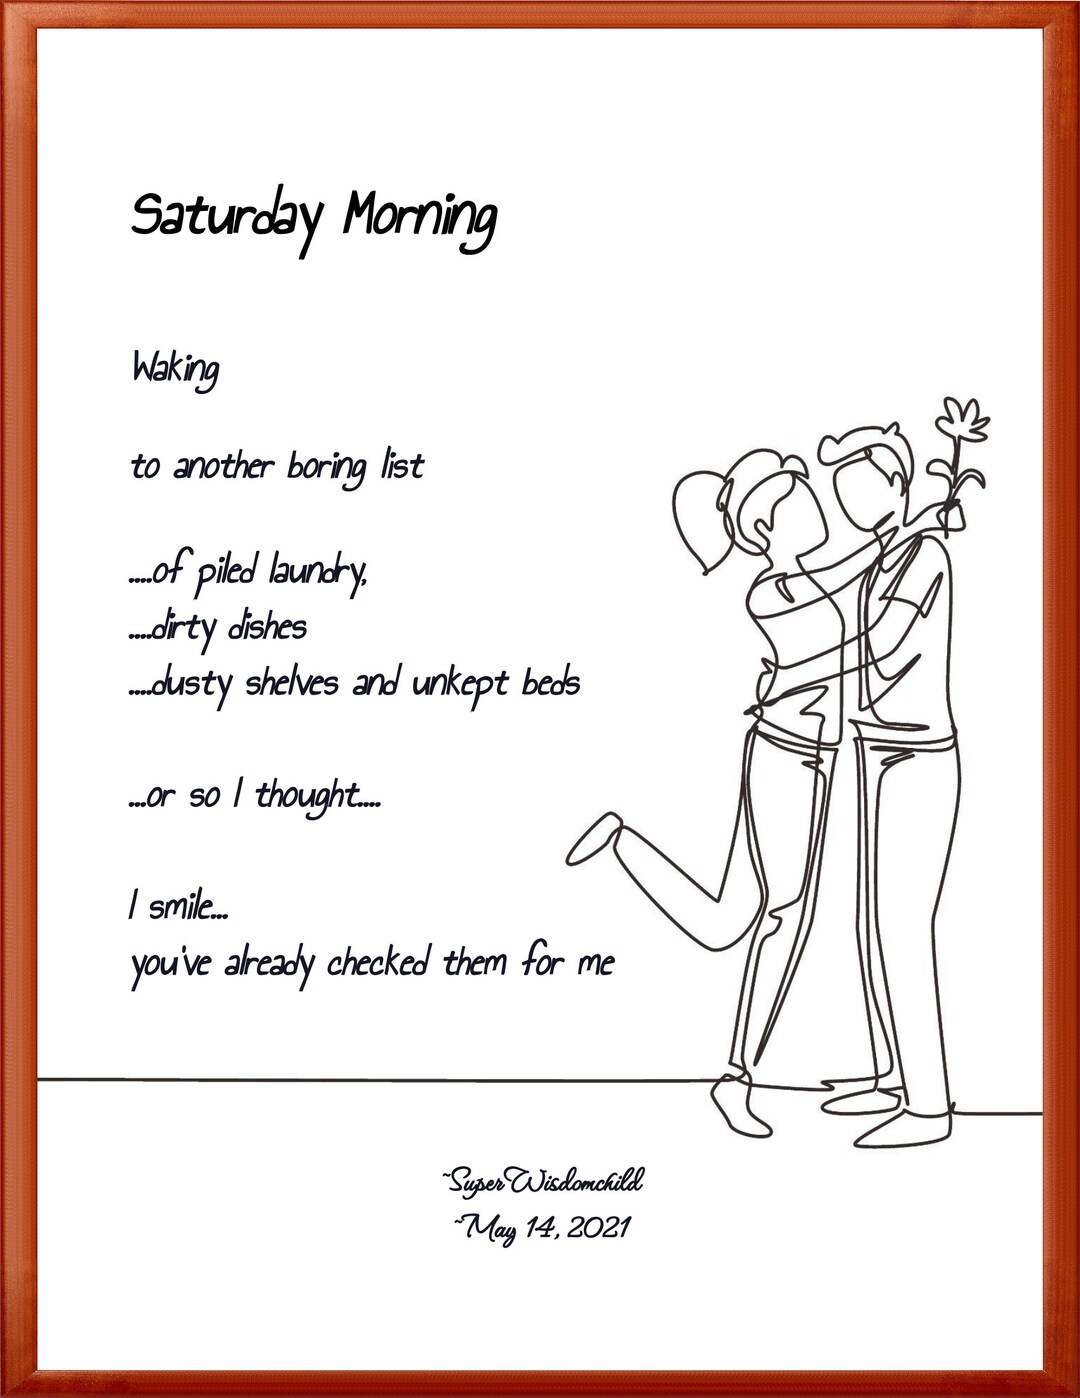 Saturday Morning
Waking
to another boring list
....of piled laundry,
....dirty dishes
....dusty shelves and unkept beds
...or so I thought....
I smile...
you've already checked them for me
~SuperWisdomchild
~May 14, 2021